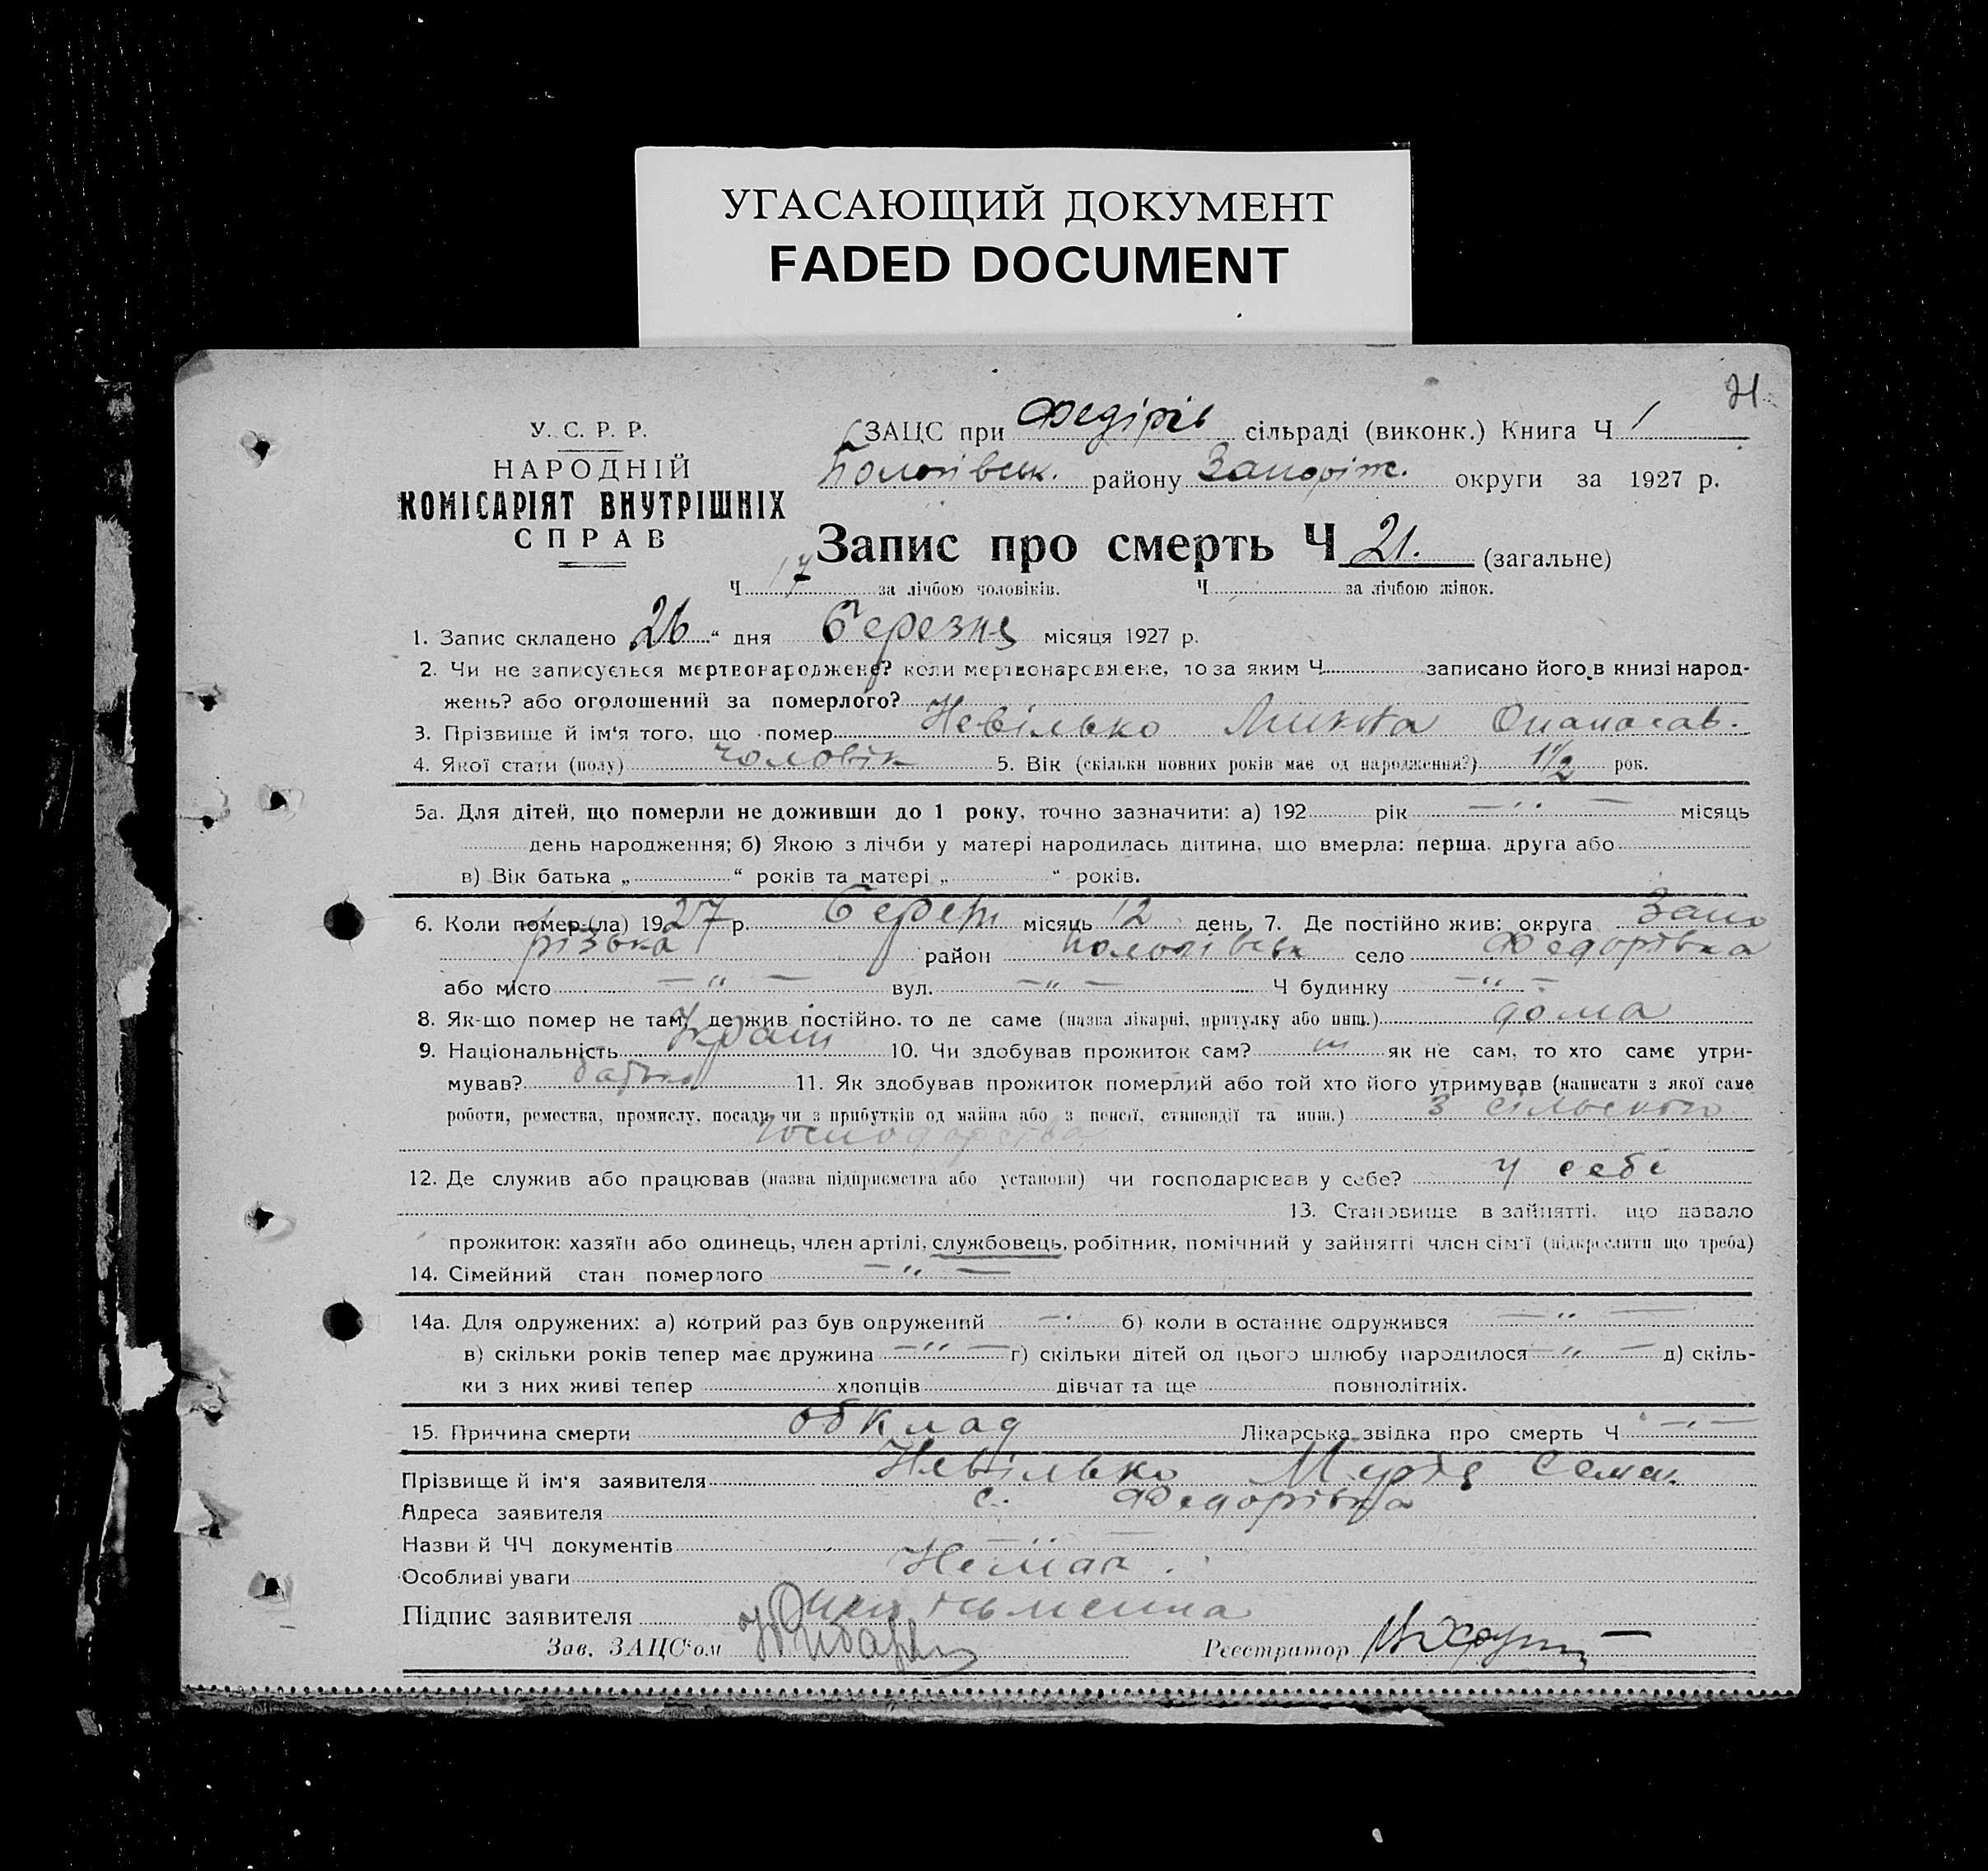 УГАСАЮЩИЙ ДОКУМЕНТ
FADED DOCUMENT
21
У. С. Р. Р.
НАРОДНІЙ
КОМІСАРІЯТ ВНУТРІШНІХ
СПРАВ
ЗАЦС при Федірів сільраді (виконк.) Книга Ч 1
Пологівськ. району Запоріж. округи за 1927 р.
Запис про смерть Ч 21. (загальне)
Ч 17 за лічбою чоловіків. Ч за лічбою жінок.
1. Запис складено 26 " дня березня місяця 1927 р.
2. Чи не записується мертвонароджене? коли мертвонароджене, то за яким Ч записано його в книзі народ-
жень? або оголошений за померлого?
3. Прізвище й ім'я того, що помер Невілько Микита Опанасав.
4. Якої стати (полу) чоловік 5. Вік (скільки повних років має од народження?) 1 1/2 рок.
5а. Для дітей, що померли не доживши до 1 року, точно зазначити: а) 192 рік — " — місяць
день народження; б) Якою з лічби у матері народилась дитина, що вмерла: перша, друга або
в) Вік батька „ “ років та матері „ “ років.
6. Коли помер (ла) 1927 р. берез місяць 12 день. 7. Де постійно жив: округа Запо
різька район Пологівськ село Федорівка
або місто — " — вул. — " — Ч будинку — " —
8. Як-що помер не там, де жив постійно, то де саме (назва лікарні, притулку або инш.) дома
9. Національність Україн 10. Чи здобував прожиток сам? ні як не сам, то хто саме утри-
мував? батько 11. Як здобував прожиток померлий або той хто його утримував (написати з якої саме
роботи, ремества, промислу, посади чи з прибутків од майна або з пенсії, стипендії та инш.) з сільського
господарства
12. Де служив або працював (назва підприємства або установи) чи господарював у себе? у себе
13. Становище в зайнятті, що давало
прожиток: хазяїн або одинець, член артілі, службовець, робітник, помічний у зайнятті член сім'ї (підкреслити що треба)
14. Сімейний стан померлого — " —
14а. Для одружених: а) котрий раз був одружений — " б) коли в останнє одружився — " —
в) скільки років тепер має дружина — " — г) скільки дітей од цього шлюбу народилося — " — д) скіль-
ки з них живі тепер хлопців дівчат та ще повнолітніх.
15. Причина смерти обклад Лікарська звідка про смерть Ч — " —
Прізвище й ім'я заявителя Невілько Семен.
Адреса заявителя с. Федорівка
Назви й ЧЧ документів — " —
Особливі уваги Немає.
Підпис заявителя
Зав. ЗАЦС'ом
Реєстратор